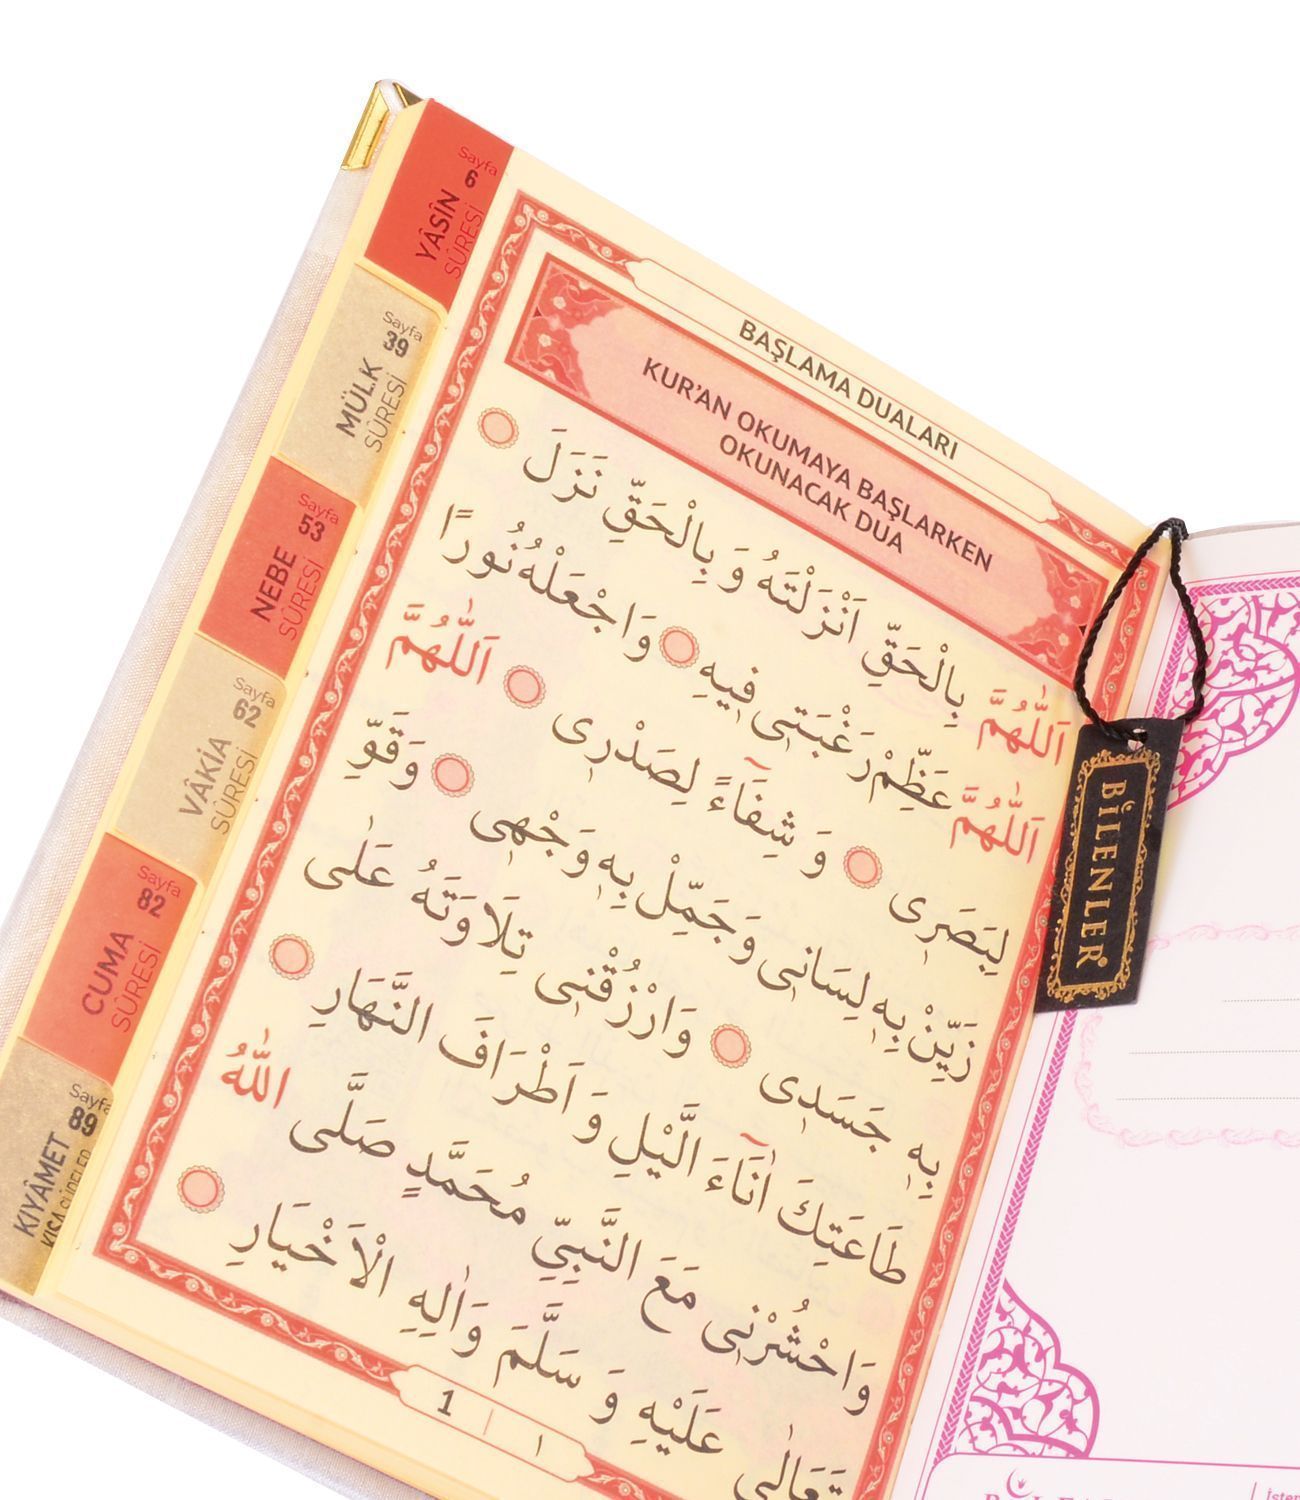 Sayfa
6
YÂSÎN
SÛRESİ
Sayfa
39
MÜLK
SÛRESİ
Sayfa
53
NEBE
SÛRESİ
Sayfa
62
VÂKİA
SÛRESİ
Sayfa
82
CUMA
SÛRESİ
Sayfa
89
KIYÂMET
KISA SÛRELER
BAŞLAMA DUALARI
KUR'AN OKUMAYA BAŞLARKEN
OKUNACAK DUA
اَللّٰهُمَّ بِالْحَقِّ اَنْزَلْتَهُ وَ بِالْحَقِّ نَزَلَ
اَللّٰهُمَّ عَظِّمْ رَغْبَتٖى فٖيهِ وَاجْعَلْهُ نُورًا
لِبَصَرٖى وَ شِفَٓاءً لِصَدْرٖى اَللّٰهُمَّ
زَيِّنْ بِهٖ لِسَانٖى وَجَمِّلْ بِهٖ وَجْهٖى وَقَوِّ
بِهٖ جَسَدٖى وَارْزُقْنٖى تِلَاوَتَهُ عَلٰى
طَاعَتِكَ اٰنَٓاءَ الَّيْلِ وَ اَطْرَافَ النَّهَارِ
وَاحْشُرْنٖى مَعَ النَّبِيِّ مُحَمَّدٍ صَلَّى اللّٰهُ
تَعَالٰى عَلَيْهِ وَ سَلَّمَ وَاٰلِهِ الْاَخْيَارِ
1 | ١
BİLENLER